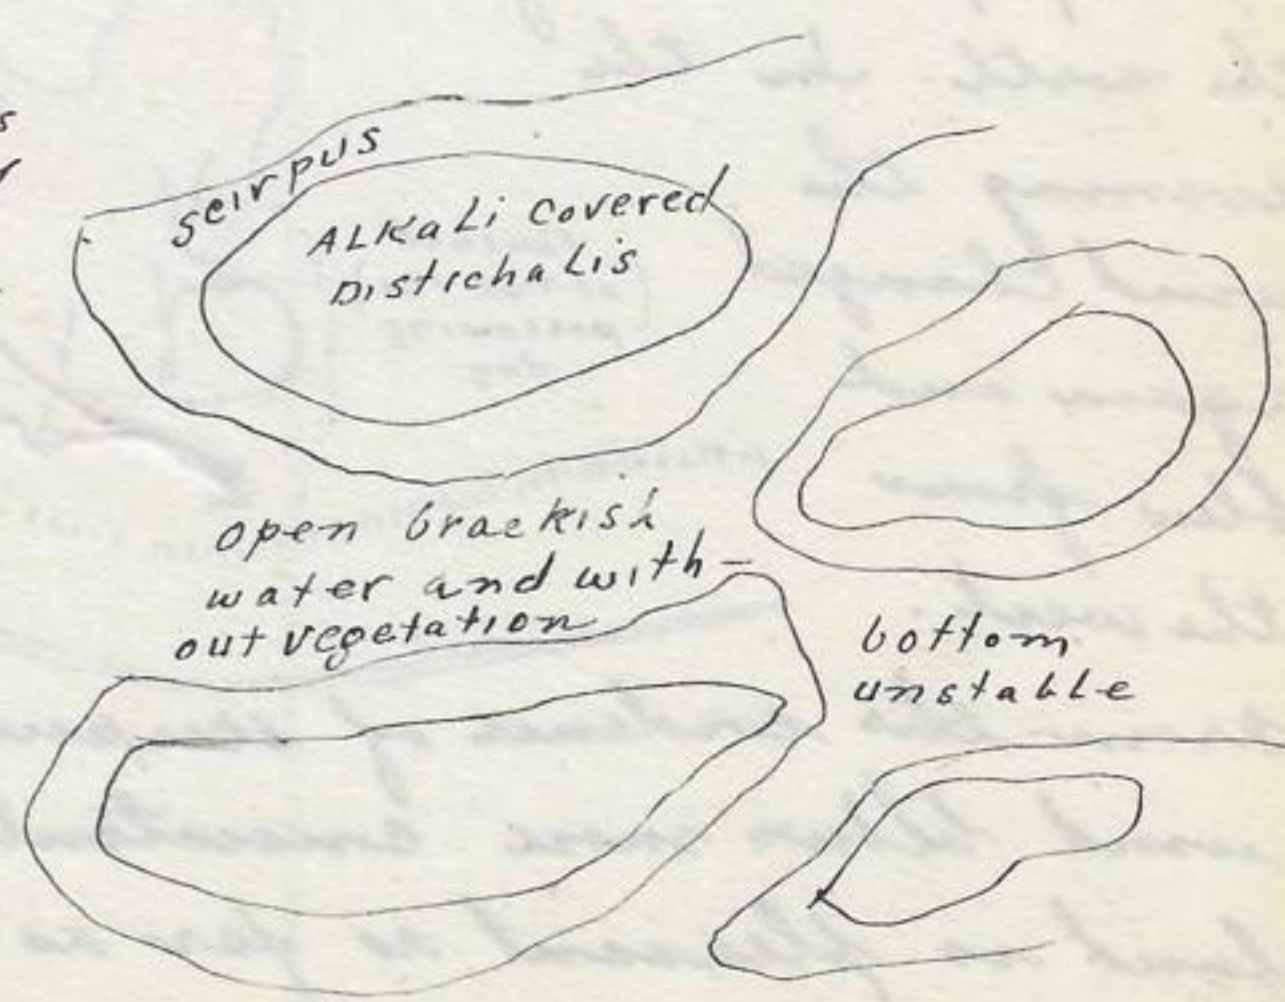 scirpus
ALKaLi covered
Distichalis
open brackish
water and with-
out vegetation
bottom
unstable